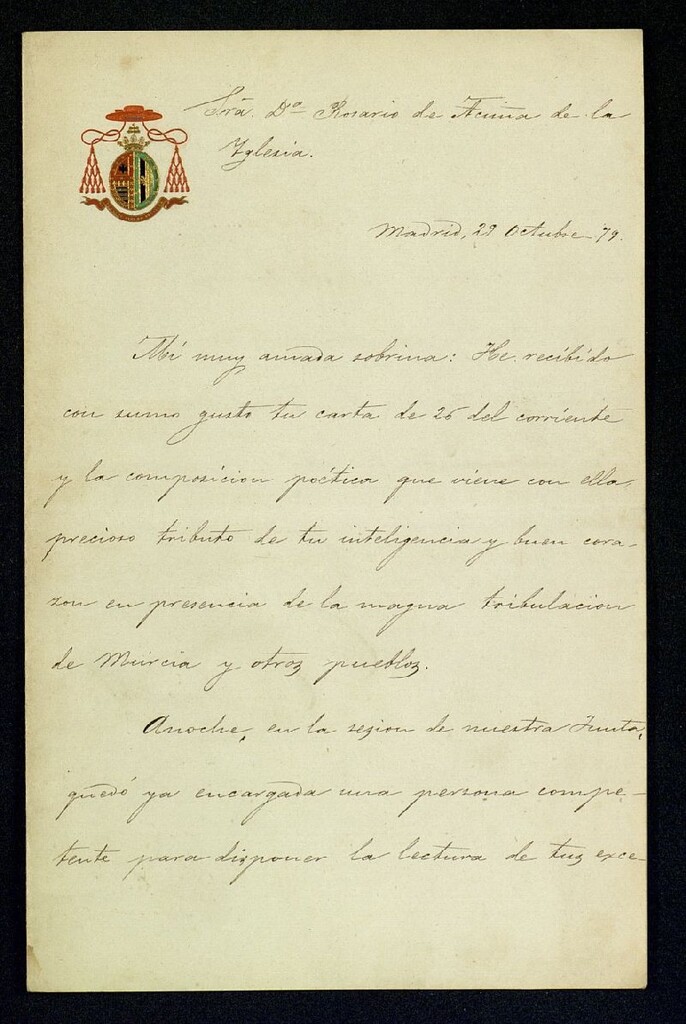 Sra. Dª Rosario de Acuña de la
Yglesia.
Madrid, 29 Octubre 79.
Mi muy amada sobrina: He recibido
con sumo gusto tu carta de 26 del corriente
y la composicion poética que viene con ella,
precioso tributo de tu inteligencia y buen cora-
zon en presencia de la magna tribulacion
de Murcia y otros pueblos.
Anoche, en la sesion de nuestra Junta,
quedó ya encargada una persona compe-
tente para disponer la lectura de tus exce-